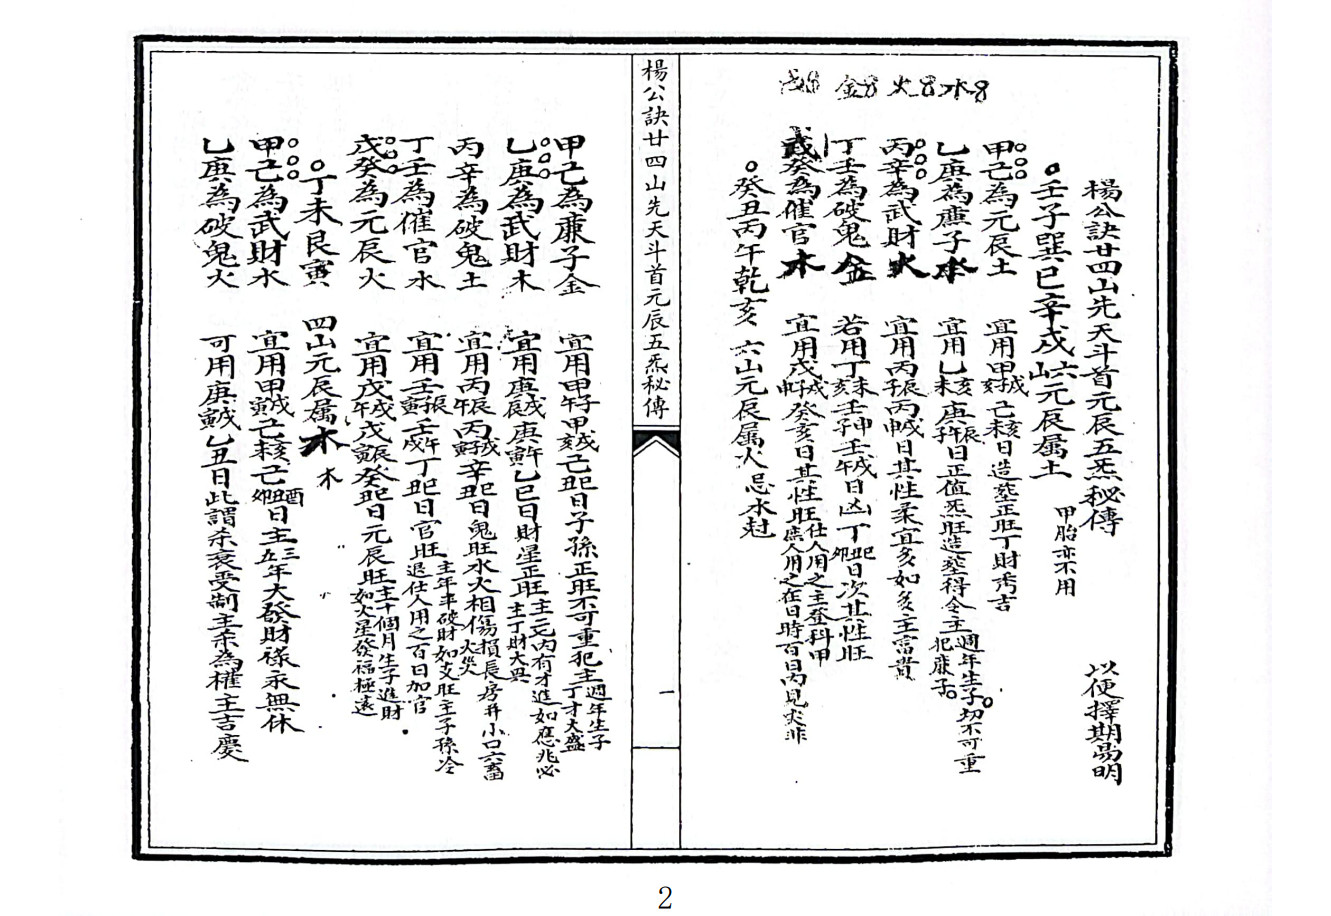 楊公訣廿四山先天斗首元辰五炁秘傳　以便擇期易明
壬子巽巳辛戌六山元辰属土　甲胎亦不用
甲己為元辰土　宜用甲戌己未亥日造塟正旺丁財秀吉
乙庚為亷子水　宜用乙亥未庚辰午子日正值炁旺造塟得令主週年生子切不可重犯亷子
丙辛為武財火　宜用丙辰子丙申戌日其性柔宜多如多主富貴
丁壬為破鬼金　若用丁未亥壬申壬戌午日凶丁巳丑卯日次其性旺
戊癸為催官木　宜用戊戌申子癸亥日其性旺仕人用之主登科甲庶人用之在日時百日內見灾非
癸丑丙午乾亥　六山元辰属火忌水尅
水　火　金
楊公訣廿四山先天斗首元辰五炁秘傳
一
甲己為亷子金　宜用甲子午甲戌己丑巳日子孫正旺不可重犯主週年生子丁才大盛
乙庚為武財木　宜用庚戌辰庚午寅乙巳日財星正旺主丁財大旺
丙辛為破鬼土　宜用丙辰午丙戌寅子辛丑巳日鬼旺水火相傷損長房并小口六畜火災
丁壬為催官水　宜用壬辰寅壬午戌丁丑巳日官旺退仕人用之百日加官
戊癸為元辰火　宜用戊戌午戊辰寅癸丑巳日元辰旺主十個月生子進財如火星發福極遠
丁未艮寅　四山元辰属木　木
甲己為武財水　宜用甲戌寅己亥未己酉丑卯日主三五年大發財祿永無休
乙庚為破鬼火　可用庚戌寅乙丑日此謂杀衰受制主杀為權主吉慶
2